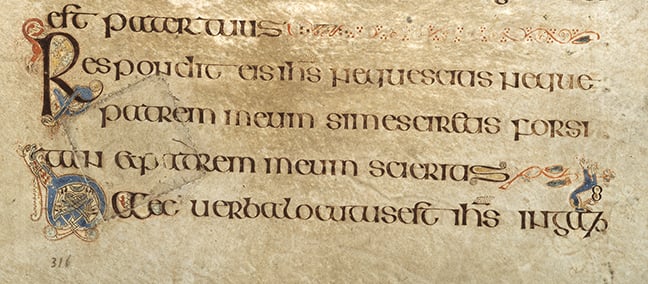 est pater tuus
Respondit eis ihs neque scitis neque
patrem meum si me sciretis forsi
tan & patrem meum sciretis
Haec uerba locutus est ihs in gaz
316